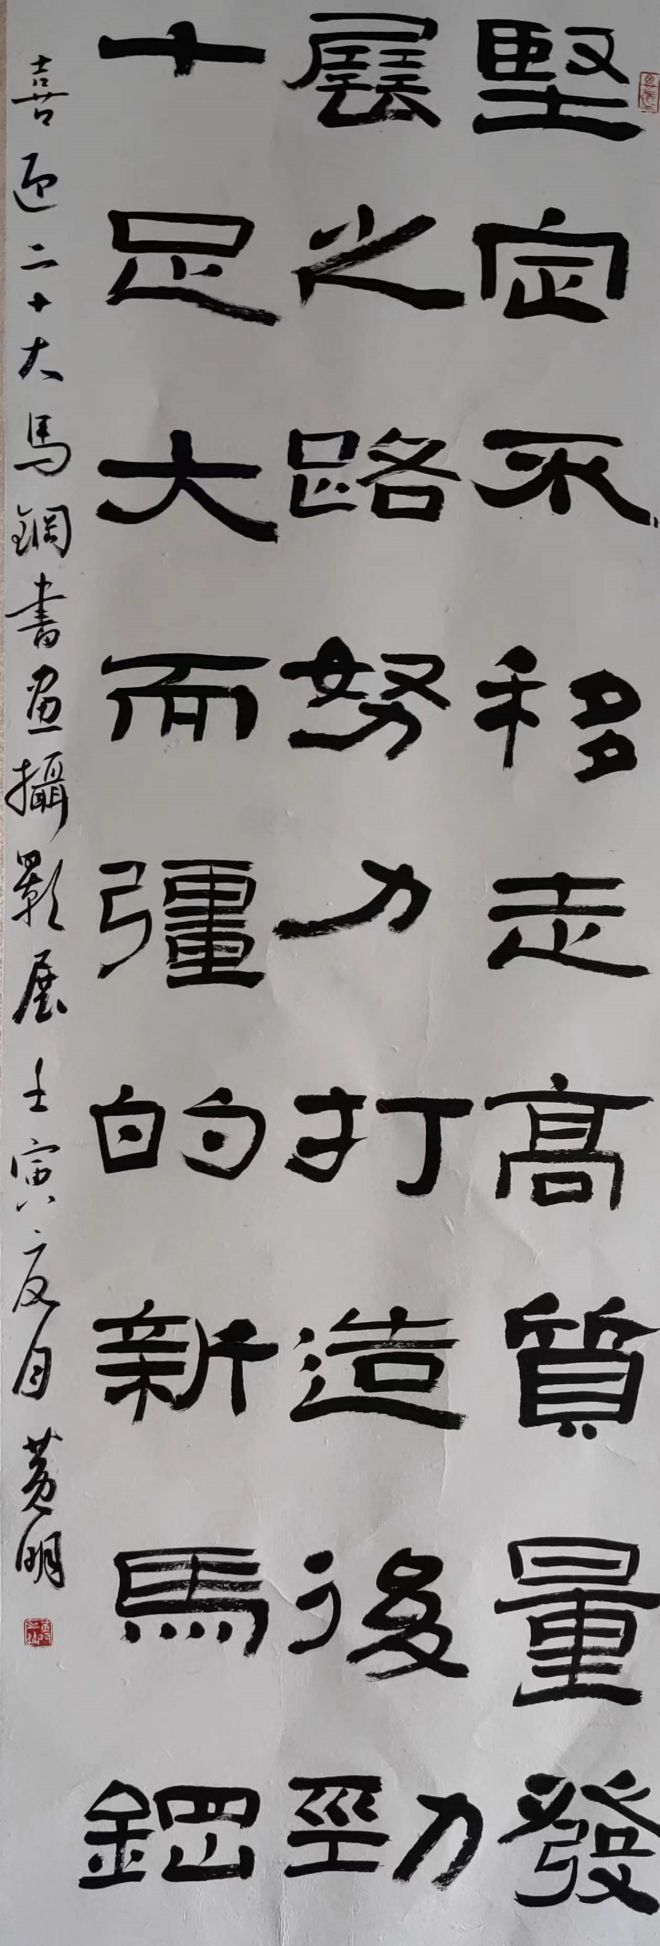 堅定不移走高質量發
展之路努力打造後勁
十足大而彊的新馬鋼
喜迎二十大馬鋼書画攝影展壬寅夏月黄明